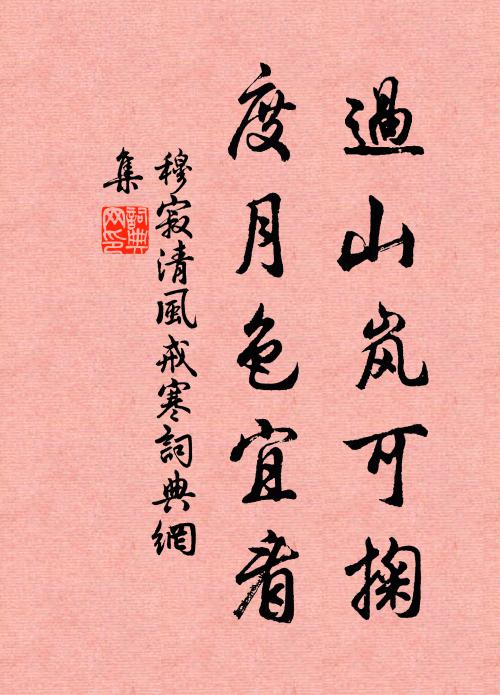 過山岚可掬
度月色宜看
穆寂清風戒寒詞典網
集
詞典
网印